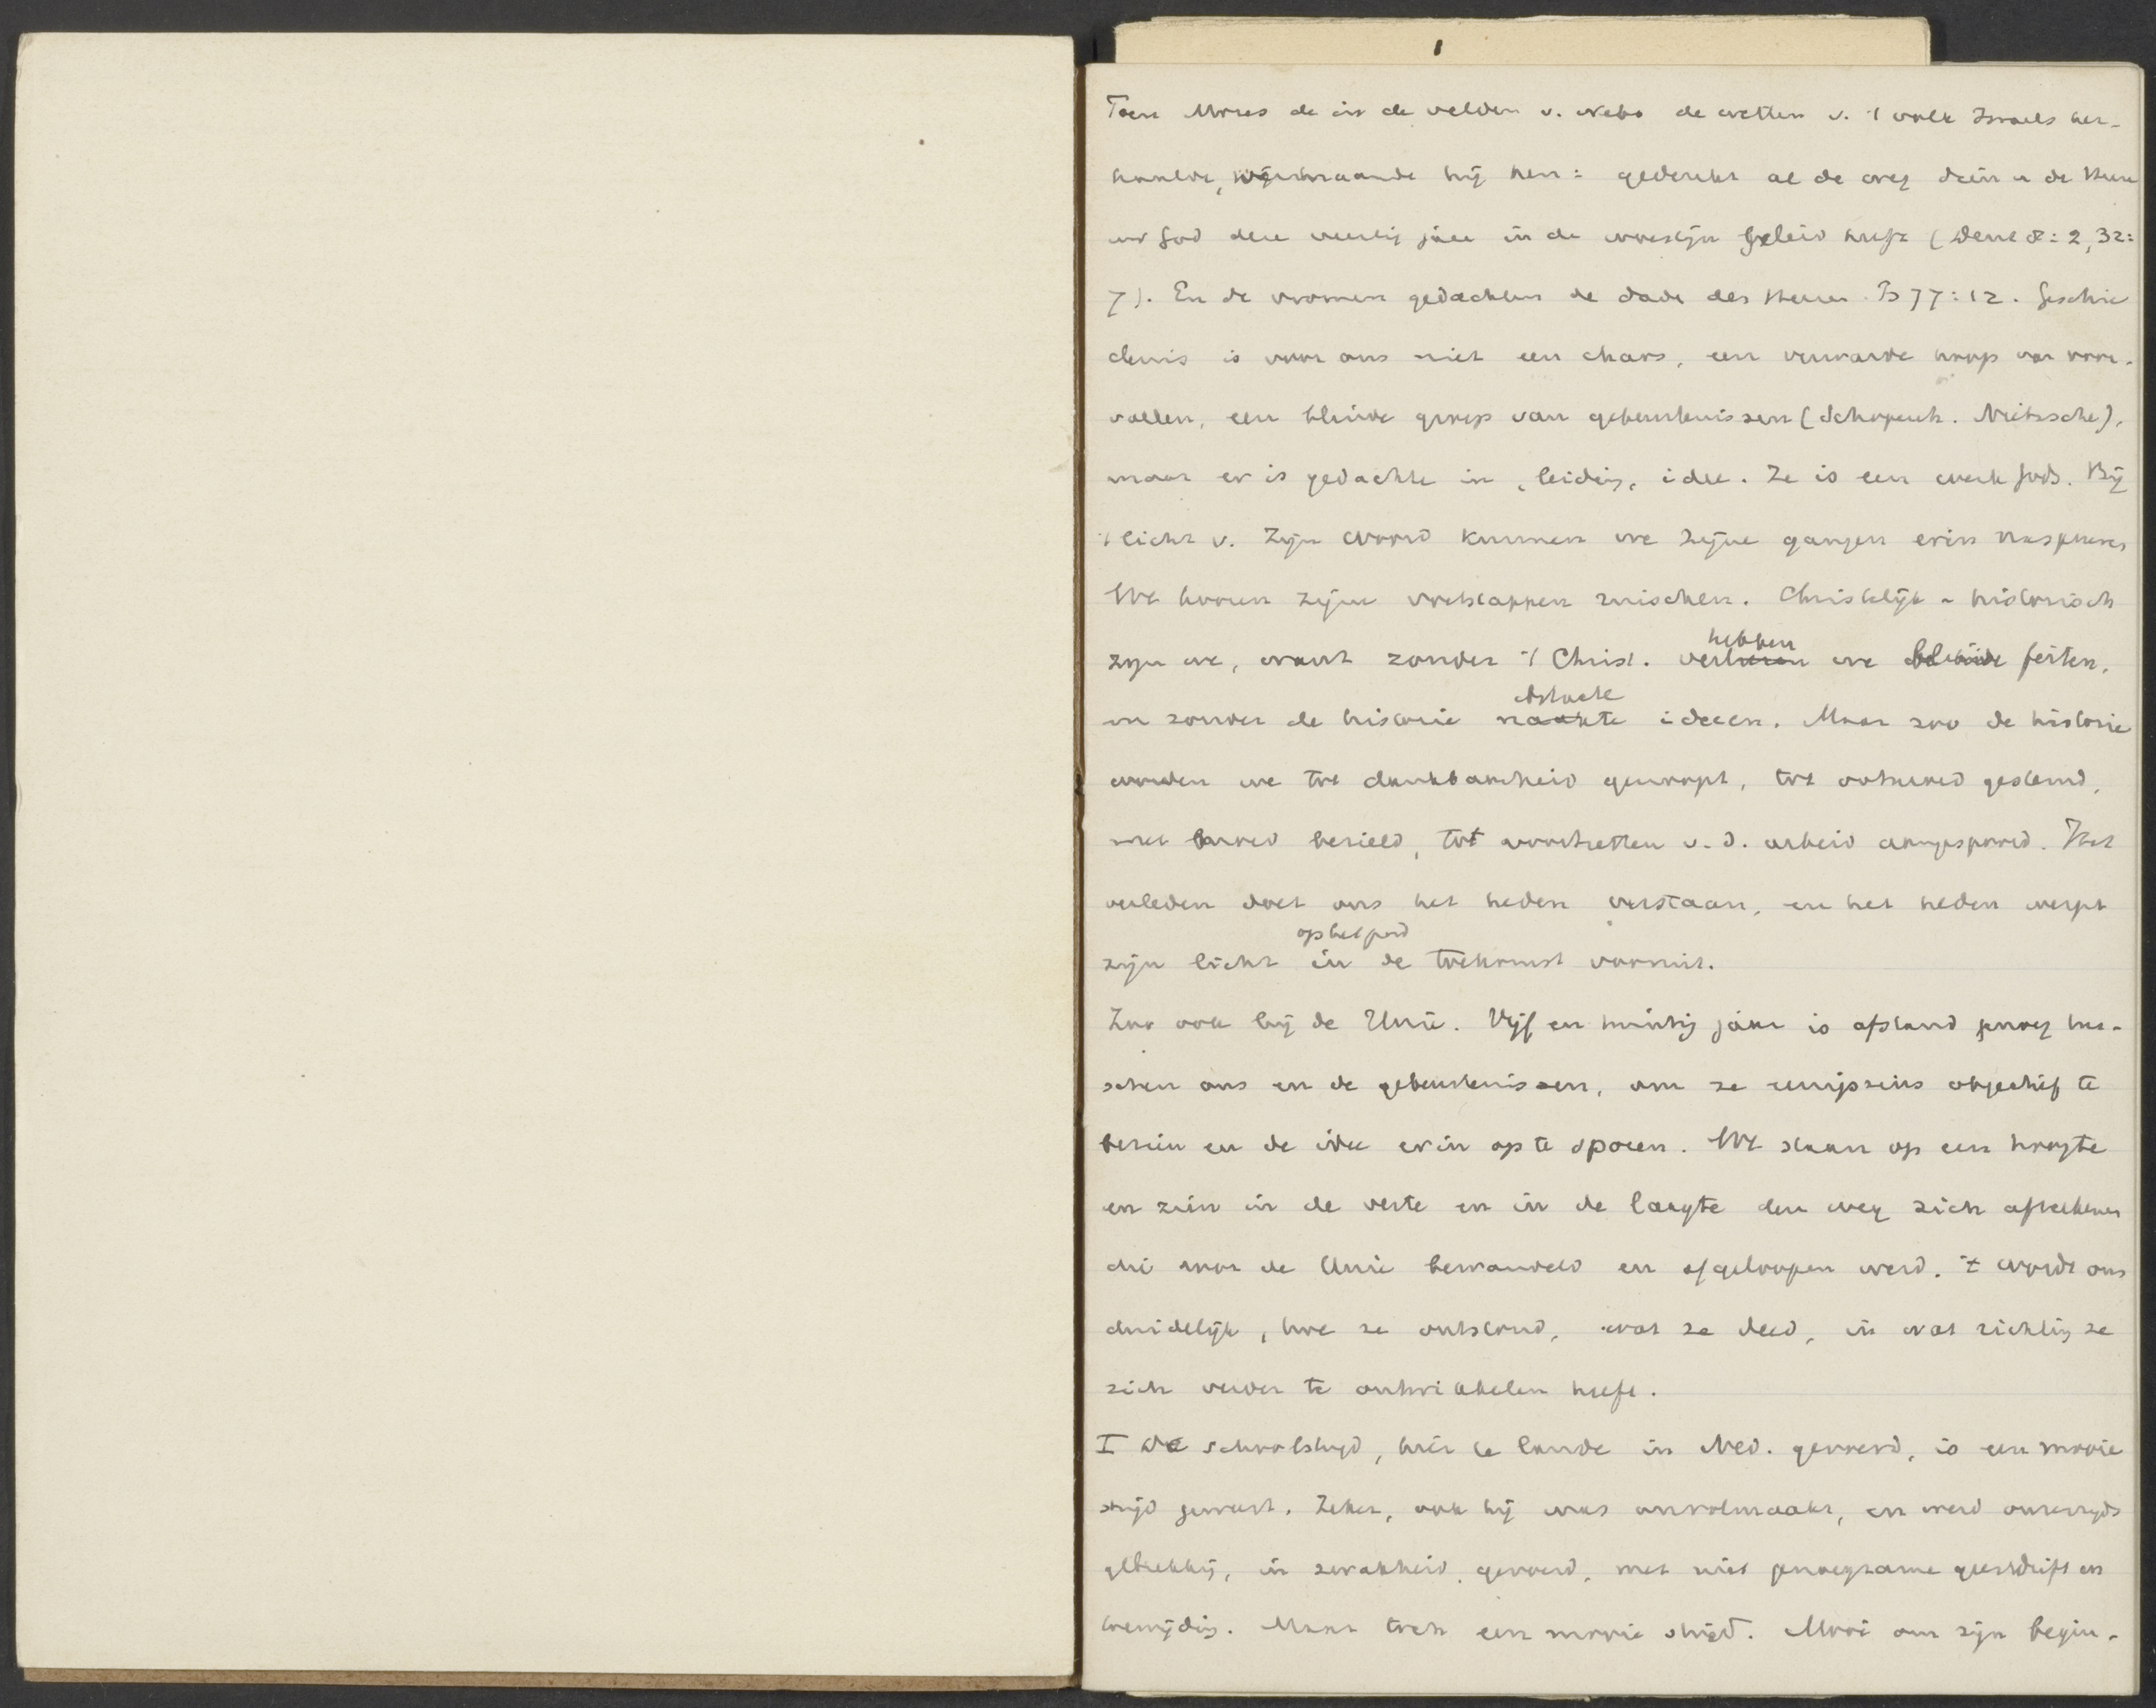 1
Toen Mozes de in de velden v. Nebo de wetten v. 't volk Israels her-
haalde, vermaande hij hen: gedenkt al de weg dien u de Heere
uw God deze veertig jaar in de woestijn geleid heeft (Deut 8:2, 32:
7). En de vromen gedachten de daden des Heeren Ps 77:12. Geschie
denis is voor ons niet een chaos, een verwarde hoop van voor-
vallen, een blinde greep van gebeurtenissen (Schopenh. Nietzsche),
maar er is gedachte in, leiding, idee. Ze is een werk Gods. Bij
't licht v. Zijn woord kunnen we zijne gangen erin nasporen
We hooren zijne voetstappen ruischen. Christelijk-historisch
zijn we, want zonder 't Christ. verliezen hebben we blinde feiten,
en zonder de historie naakte abstracte ideeen. Maar zoo de historie
worden we tot dankbaarheid genoopt, tot ootmoed gestemd,
met moed bezield, tot voortzetten v. d. arbeid aangespoord. Het
verleden doet ons het heden verstaan, en het heden werpt
zijn licht ophelpend in de toekomst vooruit.
Zoo ook bij de Unie. Vijf en twintig jaar is afstand genoeg tus-
schen ons en de gebeurtenissen, om ze eenigszins objectief te
bezien en de idee erin op te sporen. We staan op een hoogte
en zien in de verte en in de laagte den weg zich afteekenen
die door de Unie bewandeld en afgeloopen werd. 't wordt ons
duidelijk, hoe ze ontstond, wat ze deed, in wat richting ze
zich verder te ontwikkelen heeft.
I De schoolstrijd, hier te lande in Ned. gevoerd, is een mooie
strijd geweest. Zeker, ook hij was onvolmaakt, en werd onzerzijds
gebrekkig, in zwakheid, gevoerd, met niet genoegzame geestdrift en
toewijding. Maar toch een mooie strijd. Mooi om zijn begin-